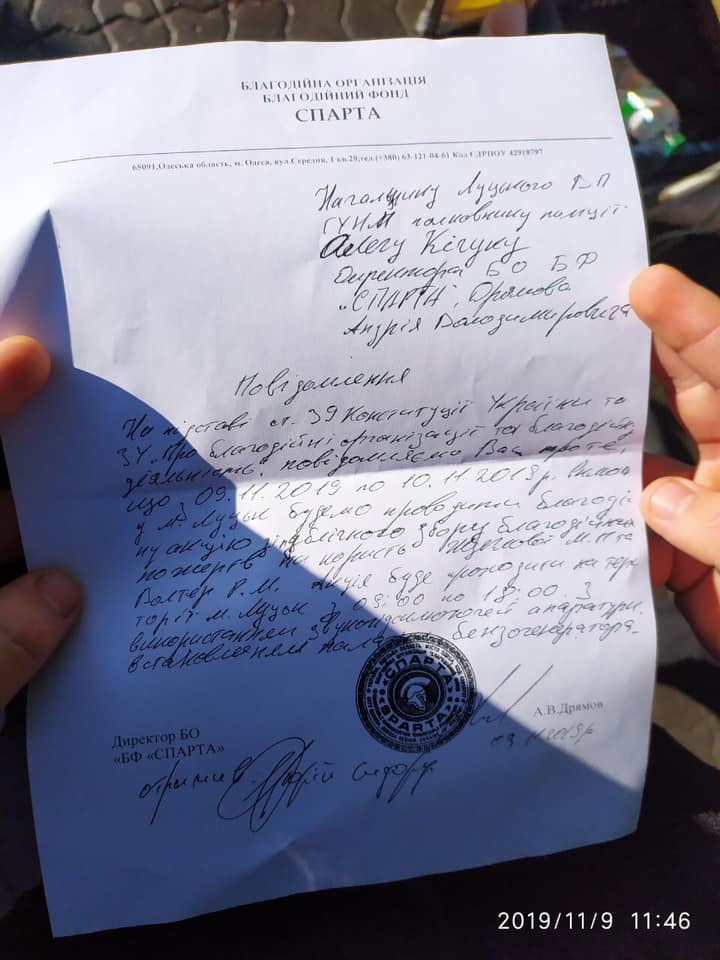 БЛАГОДІЙНА ОРГАНІЗАЦІЯ
БЛАГОДІЙНИЙ ФОНД
СПАРТА
65091,Одеська область, м. Одеса, вул.Середня, 1 кв.29,тел.(+380) 63-121-04-61 Код ЄДРПОУ 42918797
Луцького ВП
ГУНП полковнику поліції
Олегу
Директора БО БФ
„СПАРТА", Дрямова
Андрія Володимировича
Повідомлення
На підставі ст. 39 Конституції України та
ЗУ „Про благодійні організації та благодійну
діяльність" повідомляємо Вас про те,
що з 09.11.2019 по 10.11.2019р.
у м. Луцьк будемо проводити благодій
ну акцію публічного збору благодійних
пожертв на користь М.П та
Р.М. Акція буде проходити на тери
торії м. Луцьк з 09:00 по 18:00. З
використанням апаратури,
встановлення бензогенератора.
СПАРТА
SPARTA
Директор БО
«БФ «СПАРТА»
А.В.Дрямов
09.11.2019р
отримав
2019/11/9 11:46